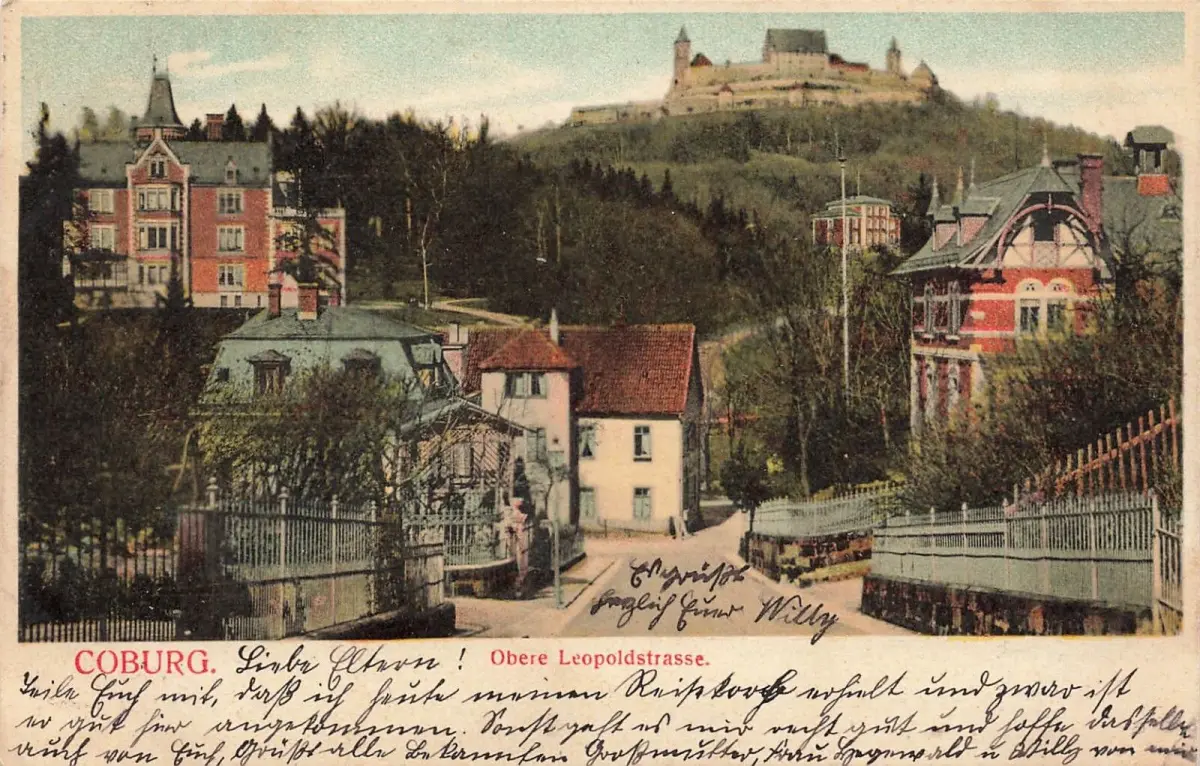 Es grüßt
herzlich Euer Willy
COBURG. Liebe Eltern! Obere Leopoldstrasse.
Teile Euch mit, daß ich heute meinen Reisekorb erhielt und zwar ist
er gut hier angekommen. Sonst geht es mir recht gut und hoffe dasselbe
auch von Euch, Grüßt alle Bekannten Großmutter, Frau Hegewald u Willy von mir